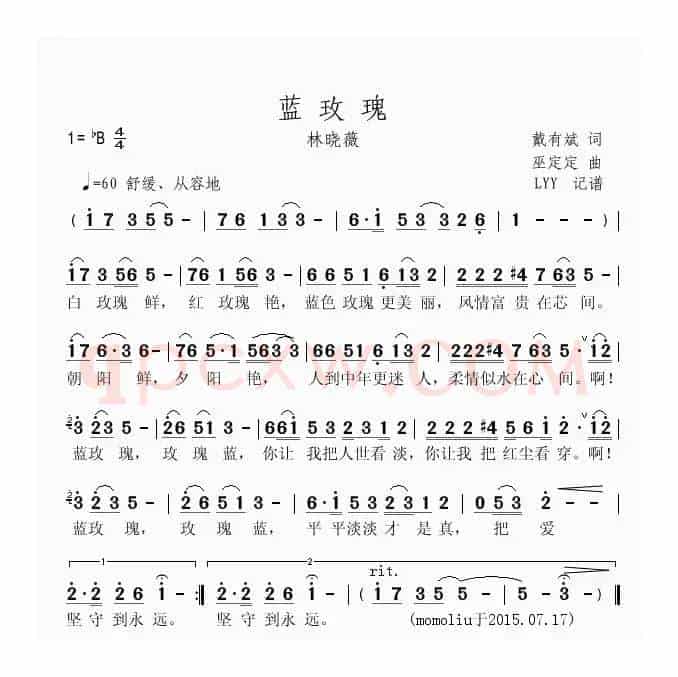 蓝 玫 瑰
1= ♭B 4/4 林晓薇 戴有斌 词
巫定定 曲
♩=60 舒缓、从容地 LYY 记谱
( i 7 3 5 5 - | 7 6 1 3 3 - | 6 · i 5 3 3 2 6 | 1 - - - )
i 7 3 5 6 5 - | 7 6 1 5 6 3 - | 6 6 5 1 5 2 6 1 3 2 | 2 2 2 2 #4 7 6 3 5 - |
白 玫瑰 鲜, 红 玫瑰 艳, 蓝色玫瑰更美 丽, 风情富 贵在芯 间。
i 7 6 · 3 6 - | 7 6 5 · 1 5 6 3 3 | 6 6 5 1 6 2 1 3 2 | 2 2 2 #4 7 6 3 5 - i 2 |
朝 阳 鲜, 夕 阳 艳, 人到中年更迷 人, 柔情似水在心 间。啊!
3 2 3 5 - | 2 6 5 1 - | 6 6 i 5 5 3 2 1 2 | 2 2 2 3 5 5 6 i 2 · i 2 |
蓝玫 瑰, 玫 瑰 蓝, 你让 我把人世看 淡, 你让我 把 红尘看 穿。啊!
3 2 3 5 - | 2 6 5 1 - | 6 · i 5 3 2 3 1 2 | 0 5 3 2 - |
蓝玫 瑰, 玫 瑰 蓝, 平 平淡淡才 是真, 把 爱
1 2
rit.
2 · 2 2 6 i - :| 2 · 2 2 6 i - | ( i 7 3 5 5 - | 5 - 3 - )
坚 守 到永 远。 坚 守 到永 远。 (momoliu于2015.07.17)
qpcxw.COM